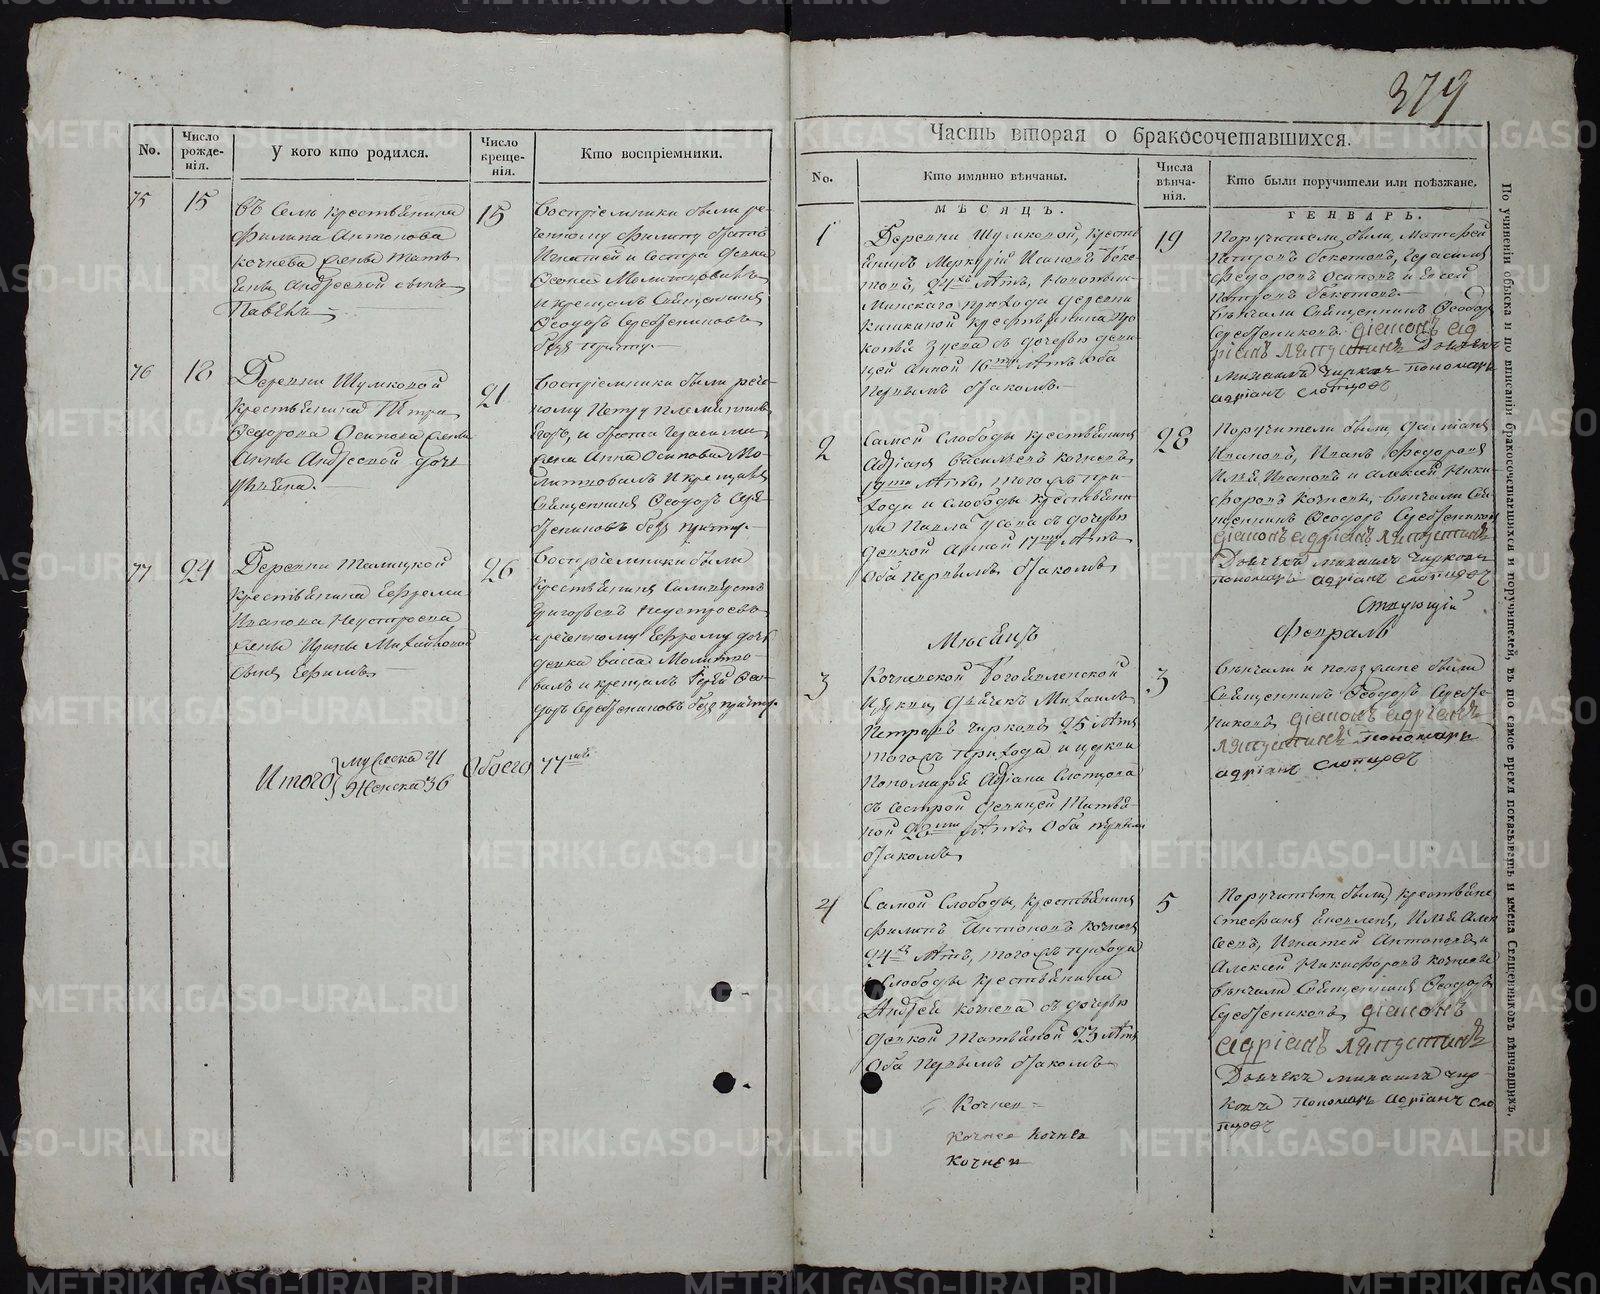 379
No.
Число рожде-нія.
У кого кто родился.
Число креще-нія.
Кто воспріемники.
75
15
въ Селѣ крестьянина
Филипа Антонова
Кочнева жены Тать
яны Андреевой сынъ
Павелъ
15
Воспріемники были ре
ченному Филипу братъ
Игнатей и сестра девка
Молитвовалъ
и крещалъ Священникъ
Ѳеодоръ Серебрениковъ
безъ причту
76
18
Деревни Шумковой
крестьянина Петра
Ѳедорова Осипова жены
Анны Андреевой дочь
21
Воспріемники были рече
ному Петру племянникъ
Егоръ, и брата Герасима
жена Анна Осиповы Мо
литвовалъ и крещалъ
Священникъ Ѳеодоръ Сере
брениковъ безъ причту
77
24
Деревни Талицкой
крестьянина Ефрема
Иванова Неустроева
жены Ирины Михайловой
сынъ Ефимъ
26
Воспріемники были
крестьянинъ Селиверстъ
Григорьевъ Неустроевъ
и реченному Ефрему дочь
девка Васса Молитво
валъ и крещалъ Іерей Ѳео
доръ Серебрениковъ безъ причту
Итого
мужеска 41
Женска 36
Обоего 77
Часть вторая о бракосочетавшихся.
No.
Кто имянно вѣнчаны.
Числа вѣнча-нія.
Кто были поручители или поѣзжане.
МѢСЯЦЪ.
ГЕНВАРЬ.
1
Деревни Шумковой, кресть
янинъ Меркурій Исаковъ Беке
товъ, 24 лѣтъ,
Минскаго прихода деревни
Кишкиной крестьянина Про
копья Зуева съ дочерью деви
цей Анной 16 лѣтъ Оба
Первымъ бракомъ
19
Поручители были, Матфей
Петровъ Бекетовъ, Герасимъ
Федоровъ Осиповъ и Елисей
Петровъ Бекетовъ
Вѣнчали Священникъ Ѳеодоръ
Серебрениковъ діаконъ ад
ріанъ Ляпустинъ Дьячекъ
Михаилъ Чирковъ пономарь
адріанъ Слопцовъ
2
Самой Слободы крестьянинъ
Адріанъ Васильевъ Кочневъ,
19 лѣтъ, тогожъ при
хода и слободы крестьяни
на Павла Гусева съ дочерью
девкой Анной 17 лѣтъ
Оба первымъ бракомъ
28
Поручители были, Даміанъ
Ивановъ, Иванъ Федоровъ
Илья Ивановъ и Алексѣй Ники
форовъ Кочневы, вѣнчали Свя
щенникъ Ѳеодоръ Серебрениковъ
діаконъ адріанъ Ляпустинъ
Дьячекъ михаилъ Чирковъ
пономарь адріанъ Слопцовъ
Мѣсяцъ
Февраль
3
Кочневской Богоявленской
церкви дьячекъ Михаилъ
Петровъ Чирковъ 25 лѣтъ
тогожъ прихода и церкви
Пономаря Адріана Слопцова
съ сестрой девицей Татья
ной 20 лѣтъ Оба первымъ
бракомъ
3
Вѣнчали и поезжане были
Священникъ Ѳеодоръ Серебре
никовъ діаконъ адріанъ
Ляпустинъ пономарь
адріанъ Слопцовъ
4
Самой Слободы, крестьянинъ
Филипъ Антоновъ Кочневъ
24 лѣтъ, тогожъ прихода
Слободы крестьянина
Андрея Кочнева съ дочерью
девкой Татьяной 23 лѣтъ
Оба первымъ бракомъ
5
Поручители были, крестьяне
Стефанъ Яковлевъ, Илья Алек
сеевъ, Игнатей Антоновъ и
Алексѣй Никифоровъ Кочневы
вѣнчали Священникъ Ѳеодоръ
Серебрениковъ діаконъ
адріанъ Ляпустинъ
Дьячекъ михаилъ чир
ковъ пономарь адріанъ Сло
пцовъ
Кочнев
Кочнев Кочнев
Кочнев
По учиненіи обыска и по вписаніи бракосочетавшихся и поручителей, въ то самое время показывать и имена Священниковъ вѣнчавшихъ.
METRIKI.GASO-URAL.RU